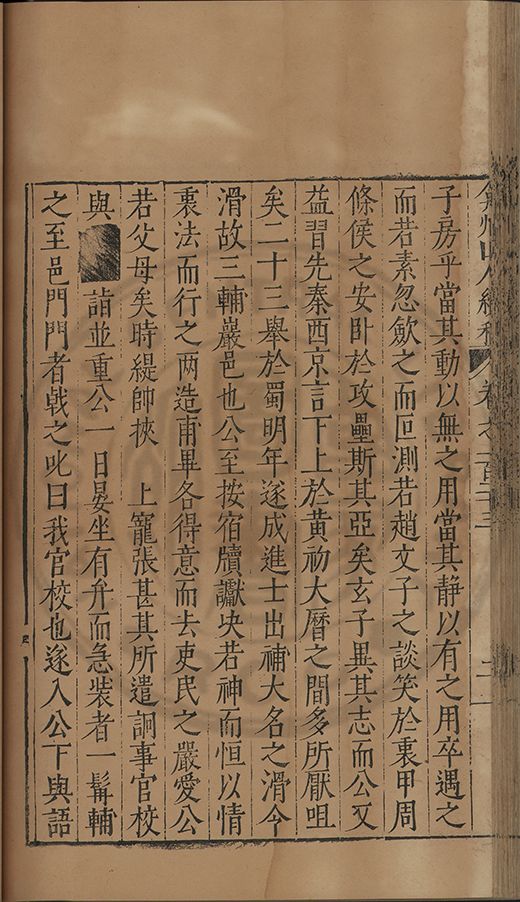 弇州山人續稿 卷之一百三十三 二
子房乎當其動以無之用當其靜以有之用卒遇之
而若素忽歛之而叵測若趙文子之談笑於裏甲周
條侯之安卧於攻壘斯其亞矣玄子異其志而公又
益習先秦西京言下上於黄初大曆之間多所厭咀
矣二十三舉於蜀明年遂成進士出補大名之滑令
滑故三輔巖邑也公至按宿牘讞决若神而恒以情
裏法而行之两造甫畢各得意而去吏民之嚴愛公
若父母矣時緹帥挾 上寵張甚其所遣詗事官校
與 詣並重公一日晏坐有弁而急裝者一髯輔
之至邑門門者戟之叱曰我官校也遂入公下與語